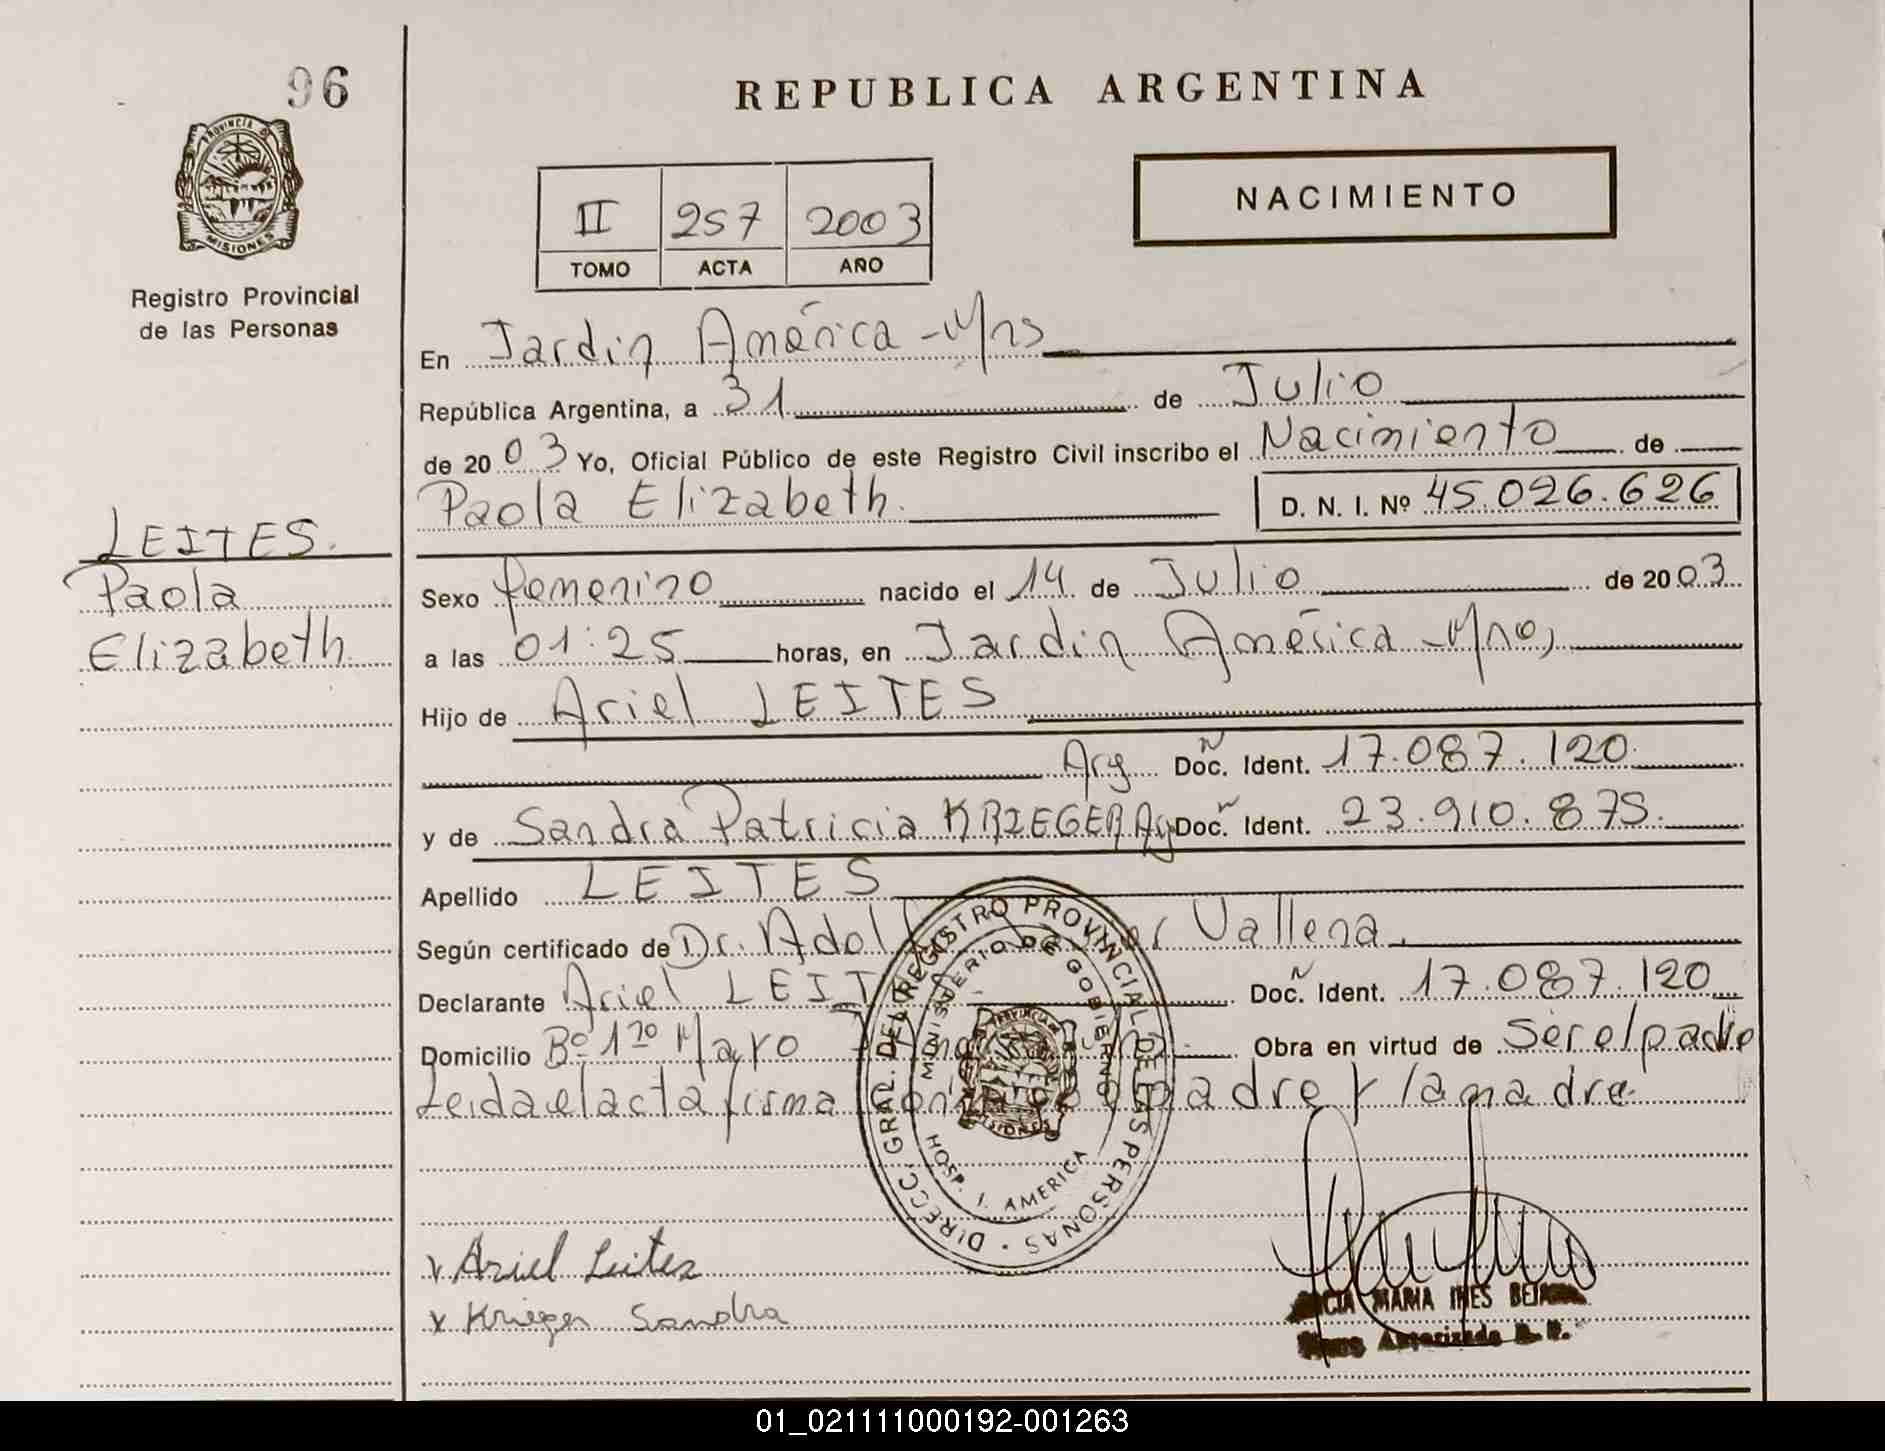 96
REPUBLICA ARGENTINA
PROVINCIA DE
MISIONES
Registro Provincial
de las Personas
II 257 2003
TOMO ACTA AÑO
NACIMIENTO
En Jardin América - Mns
República Argentina, a 31 de Julio
de 2003 Yo, Oficial Público de este Registro Civil inscribo el Nacimiento de
Paola Elizabeth. D. N. I. Nº 45.026.626
LEITES.
Paola
Elizabeth
Sexo femenino nacido el 14 de Julio de 2003
a las 01:25 horas, en Jardin América - Mns,
Hijo de Ariel LEITES
Arg Doc. Ident. 17.087.120
y de Sandra Patricia KRIEGER Arg Doc. Ident. 23.910.875.
Apellido LEITES
Según certificado de Dr. Adol Vallena.
Declarante Ariel LEIT Doc. Ident. 17.087.120
Domicilio Bº 1ro Mayo Obra en virtud de ser el padre
Leida el acta firma padre y la madre.
DIRECC. GRAL. DEL REGISTRO PROVINCIAL DE LAS PERSONAS
MINISTERIO DE GOBIERNO
PROVINCIA DE
MISIONES
HOSP. I. AMERICA
x Ariel Leites
x Krieger Sandra
MARIA INES
Autorizado
01_021111000192-001263